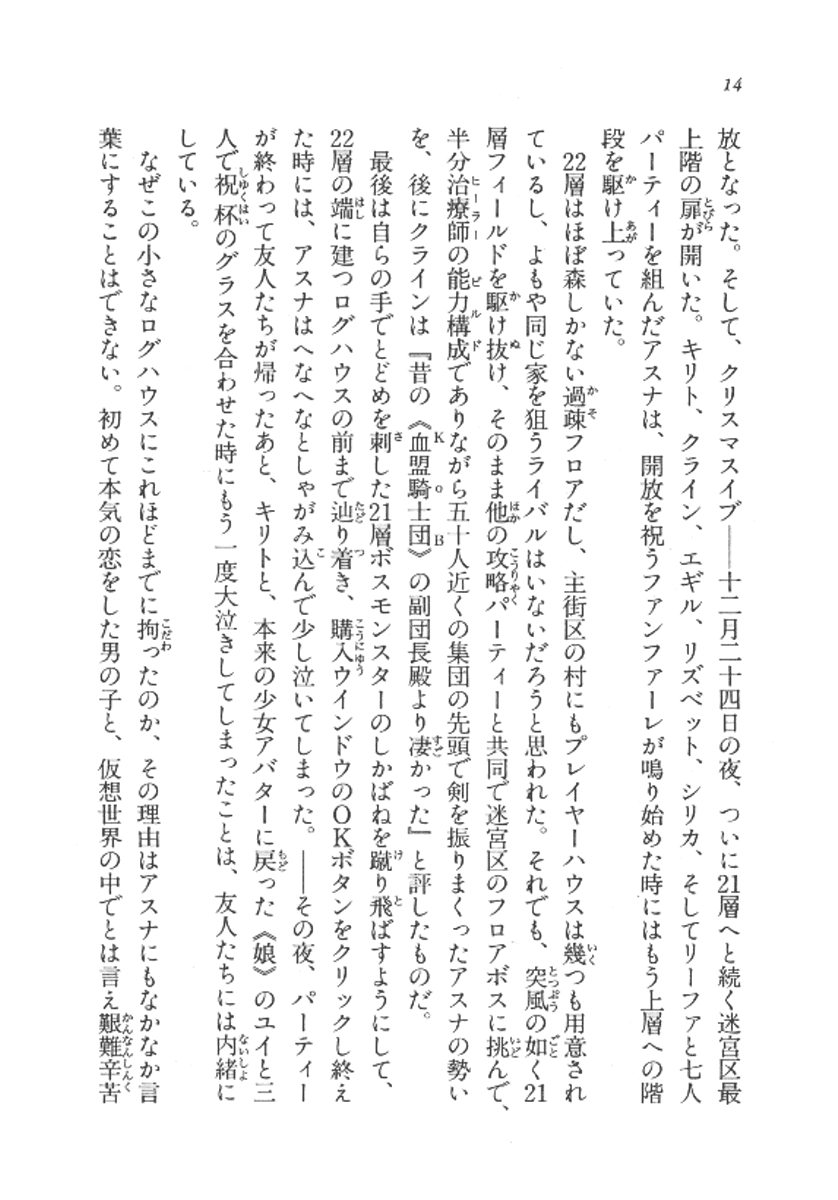 14
放となった。そして、クリスマスイブ――十二月二十四日の夜、ついに21層へと続く迷宮区最
上階の扉が開いた。キリト、クライン、エギル、リズベット、シリカ、そしてリーファと七人
パーティーを組んだアスナは、開放を祝うファンファーレが鳴り始めた時にはもう上層への階
段を駆け上っていた。
　22層はほぼ森しかない過疎フロアだし、主街区の村にもプレイヤーハウスは幾つも用意され
ているし、よもや同じ家を狙うライバルはいないだろうと思われた。それでも、突風の如く21
層フィールドを駆け抜け、そのまま他の攻略パーティーと共同で迷宮区のフロアボスに挑んで、
半分治療師の能力構成でありながら五十人近くの集団の先頭で剣を振りまくったアスナの勢い
を、後にクラインは『昔の《血盟騎士団》の副団長殿より凄かった』と評したものだ。
　最後は自らの手でとどめを刺した21層ボスモンスターのしかばねを蹴り飛ばすようにして、
22層の端に建つログハウスの前まで辿り着き、購入ウインドウのOKボタンをクリックし終え
た時には、アスナはへなへなとしゃがみ込んで少し泣いてしまった。――その夜、パーティー
が終わって友人たちが帰ったあと、キリトと、本来の少女アバターに戻った《娘》のユイと三
人で祝杯のグラスを合わせた時にもう一度大泣きしてしまったことは、友人たちには内緒に
している。
　なぜこの小さなログハウスにこれほどまでに拘ったのか、その理由はアスナにもなかなか言
葉にすることはできない。初めて本気の恋をした男の子と、仮想世界の中でとは言え艱難辛苦